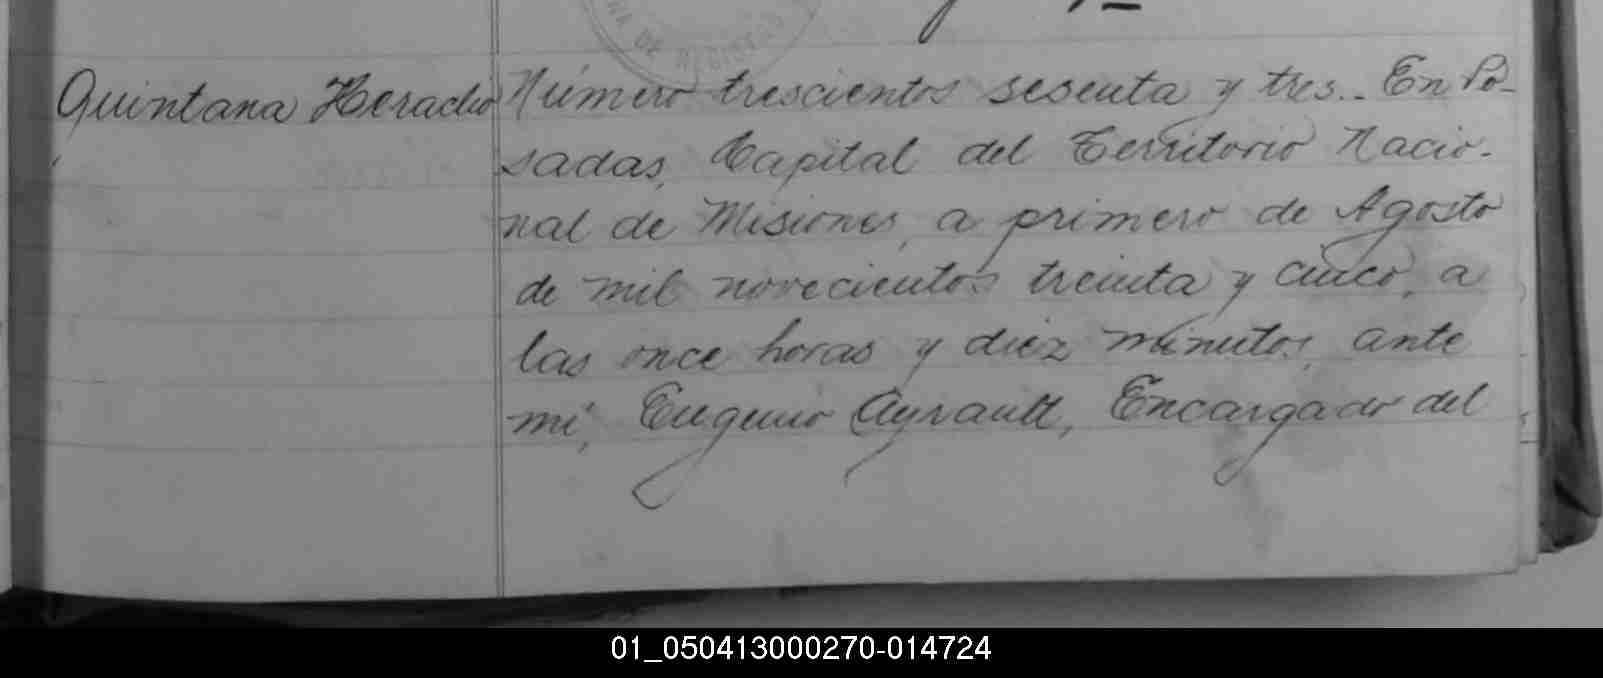 NA DE REGISTRO
Quintana Heraclio
Número trescientos sesenta y tres.. En Po-
sadas, Capital del Territorio Nacio-
nal de Misiones, a primero de Agosto
de mil novecientos treinta y cinco, a
las once horas y diez minutos, ante
mi, Eugenio Ayrault, Encargado del
01_050413000270-014724